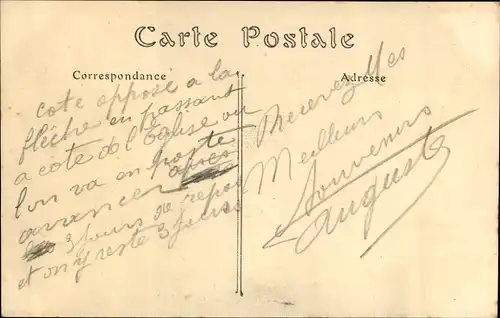 Carte Postale
Correspondance
Adresse
cote opposé a la
flèche en passant
a coté de l'Eglise ou
l'on va en poste
avancer après
3 jours de repos
et on y reste 3 jours
Recevez Mes
Meilleurs
Souvenirs
Auguste